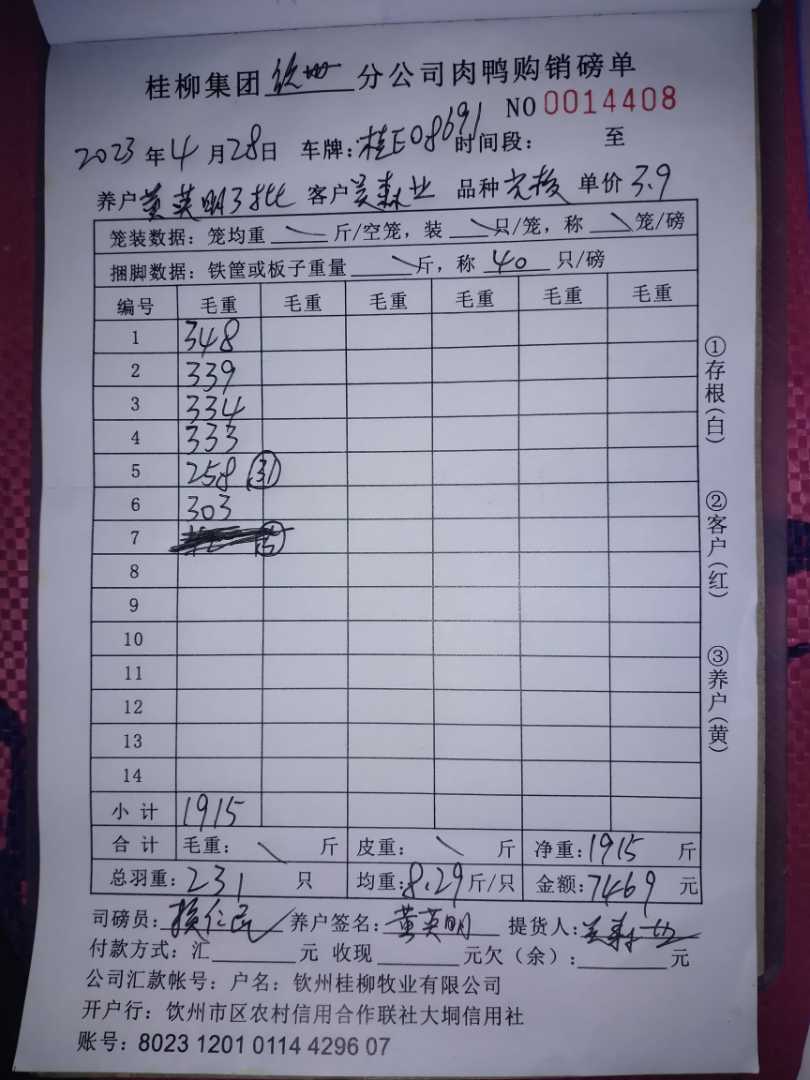 桂柳集团 钦州 分公司肉鸭购销磅单
NO 0014408
2023 年 4 月 28 日 车牌: 桂E08691 时间段: 至
养户 黄英明3批 客户 吴森业 品种 单价 3.9
笼装数据: 笼均重 \ 斤/空笼, 装 \ 只/笼, 称 \ 笼/磅
捆脚数据: 铁筐或板子重量 \ 斤, 称 40 只/磅
编号 毛重 毛重 毛重 毛重 毛重 毛重
1 348
2 339
3 334
4 333
5 258 (31)
6 303
7
8
9
10
11
12
13
14
小 计 1915
合 计 毛重: \ 斤 皮重: \ 斤 净重: 1915 斤
总羽重: 231 只 均重: 8.29 斤/只 金额: 7469 元
司磅员: 养户签名: 黄英明 提货人: 吴森业
付款方式: 汇 元 收现 元欠（余）: 元
公司汇款帐号: 户名: 钦州桂柳牧业有限公司
开户行: 钦州市区农村信用合作联社大垌信用社
账号: 8023 1201 0114 4296 07
①存根(白)
②客户(红)
③养户(黄)